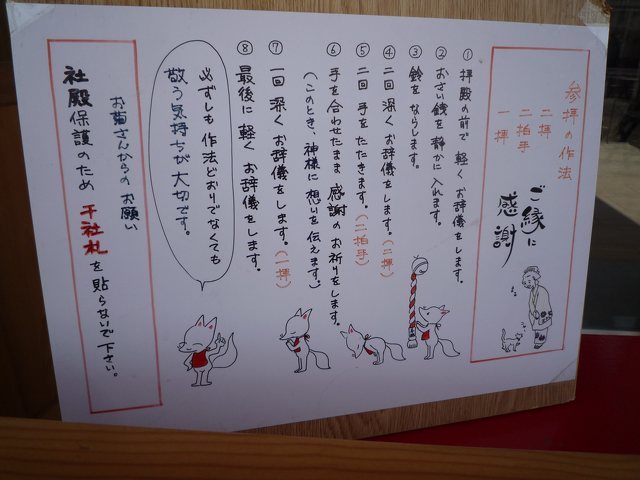 参拝の作法
二拝
二拍手
一拝
ご縁に
感謝
① 拝殿の前で 軽く お辞儀をします。
② おさい銭を 静かに 入れます。
③ 鈴を ならします。
④ 二回 深く お辞儀をします。(二拝)
⑤ 二回 手を たたきます。(二拍手)
⑥ 手を合わせたまま 感謝の お祈りをします。
(このとき、神様に 想いを 伝えます。)
⑦ 一回 深く お辞儀をします。(一拝)
⑧ 最後に 軽く お辞儀をします。
必ずしも 作法どおりでなくても
敬う気持ちが大切です。
お菊さんからの お願い
社殿保護のため 千社札を貼らないで下さい。